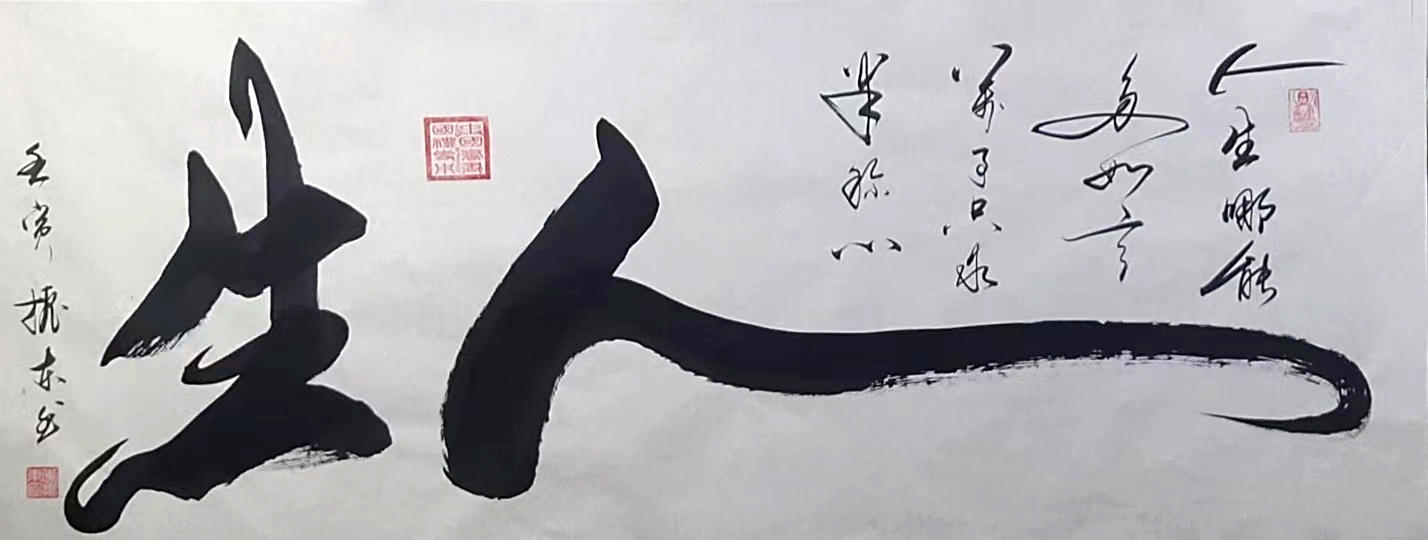 人生哪能
多如意
萬事只求
半称心
人生
壬寅 振东书